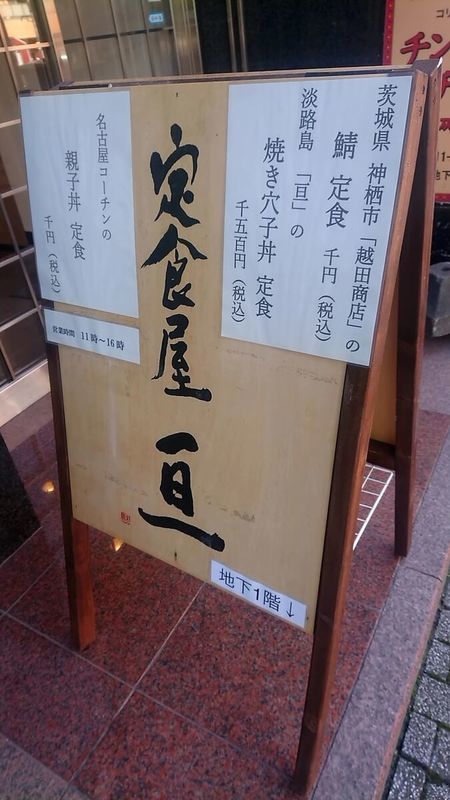 茨城県 神栖市「越田商店」の
鯖 定食 千円（税込）
淡路島 「亘」の
焼き穴子丼 定食
千五百円（税込）
定食屋 亘
名古屋コーチンの
親子丼 定食
千円（税込）
営業時間 11時～16時
地下1階↓
チン